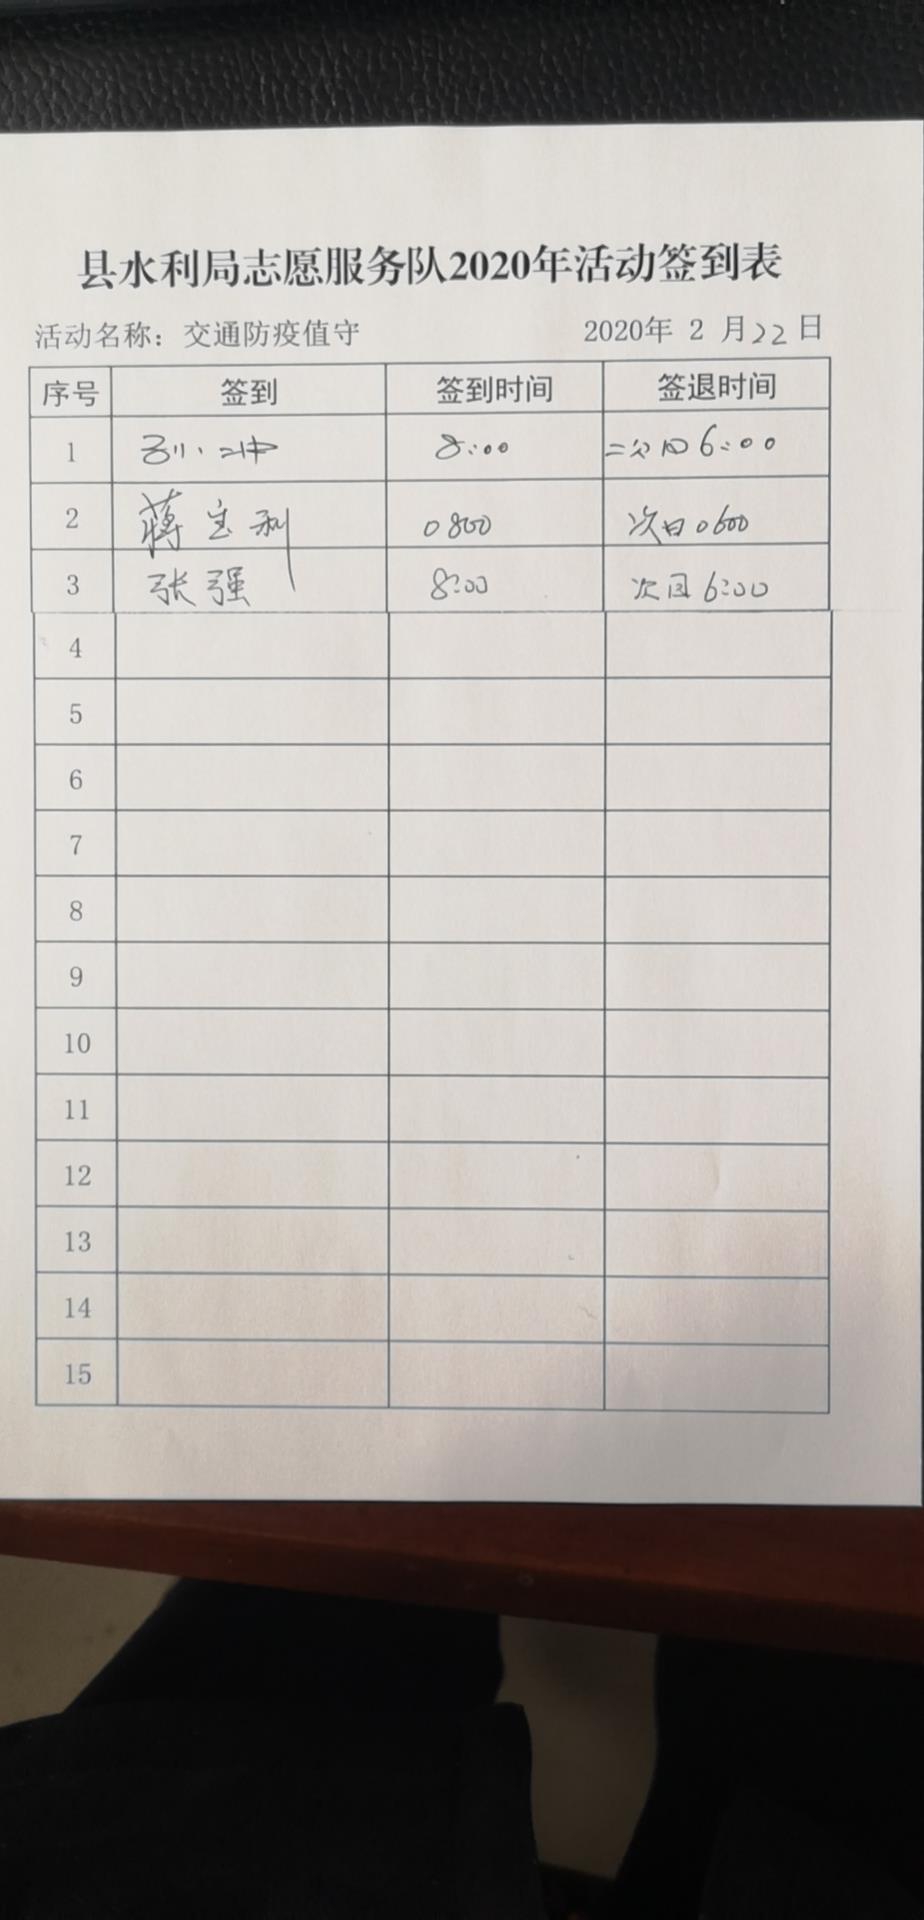 县水利局志愿服务队2020年活动签到表
活动名称：交通防疫值守 2020年 2 月22日
序号 签到 签到时间 签退时间
1 8:00 二次日6:00
2 蒋宝利 0800 次日0600
3 张强 8:00 次日6:00
4
5
6
7
8
9
10
11
12
13
14
15